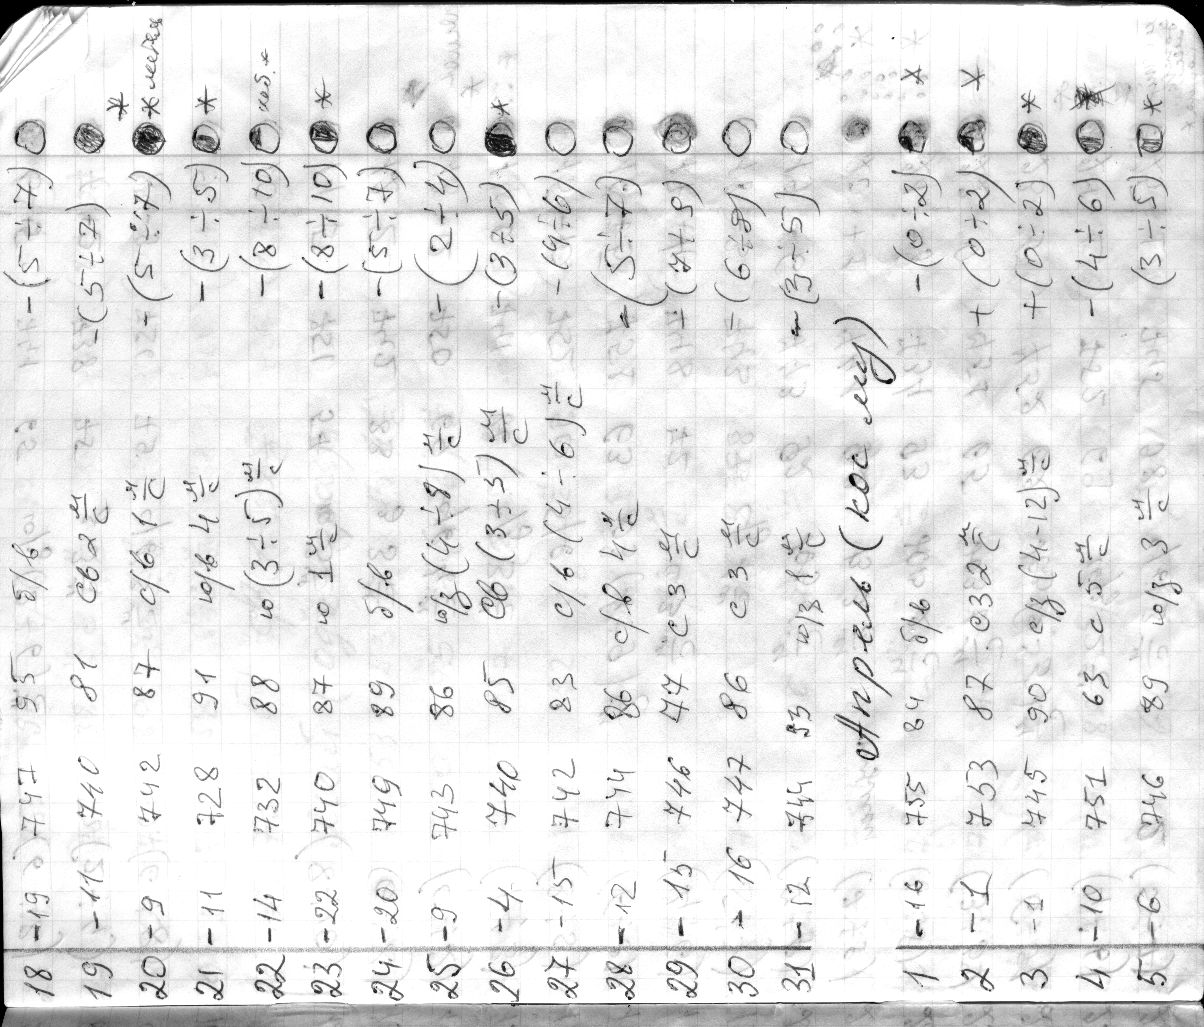 18 -19 747 95 б/в -(5÷7)
19 -11 740 81 св 2 м/с -(5÷7)
20 -9 742 87 с/в 1 м/с -(5÷7) * * метель
21 -11 728 91 ю/в 4 м/с -(3÷5) *
22 -14 732 88 ю (3÷5) м/с -(8÷10)
23 -22 740 87 ю 1 м/с -(8÷10) *
24 -20 749 89 б/в -(5÷7)
25 -9 743 86 ю/з (4÷8) м/с -(2÷4)
26 -4 740 85 св (3÷5) м/с -(3÷5) *
27 -15 742 83 с/в (4÷6) м/с -(4÷6)
28 -12 744 86 с/в 4 м/с -(5÷7)
29 -15 746 77 с 3 м/с -(7÷9)
30 -16 747 86 с 3 м/с -(6÷8)
31 -12 744 93 ю/з 1 м/с -(3÷5)
Апрель (кос лиу)
1 -16 755 84 б/в -(0÷2) *
2 -1 753 87 сз 2 м/с +(0÷2) *
3 -1 745 90 с/з (4-12) м/с +(0÷2) *
4 -10 751 63 с 5 м/с -(4÷6)
5 -6 746 89 ю/з 3 м/с (3÷5) *